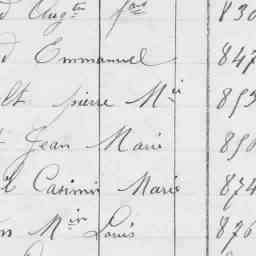 d Aug.te fois 830
d Emmanuel 847
lt pierre Mie 853
t Jean Marie 856
il Casimir Marie 874
n Min Louis 876